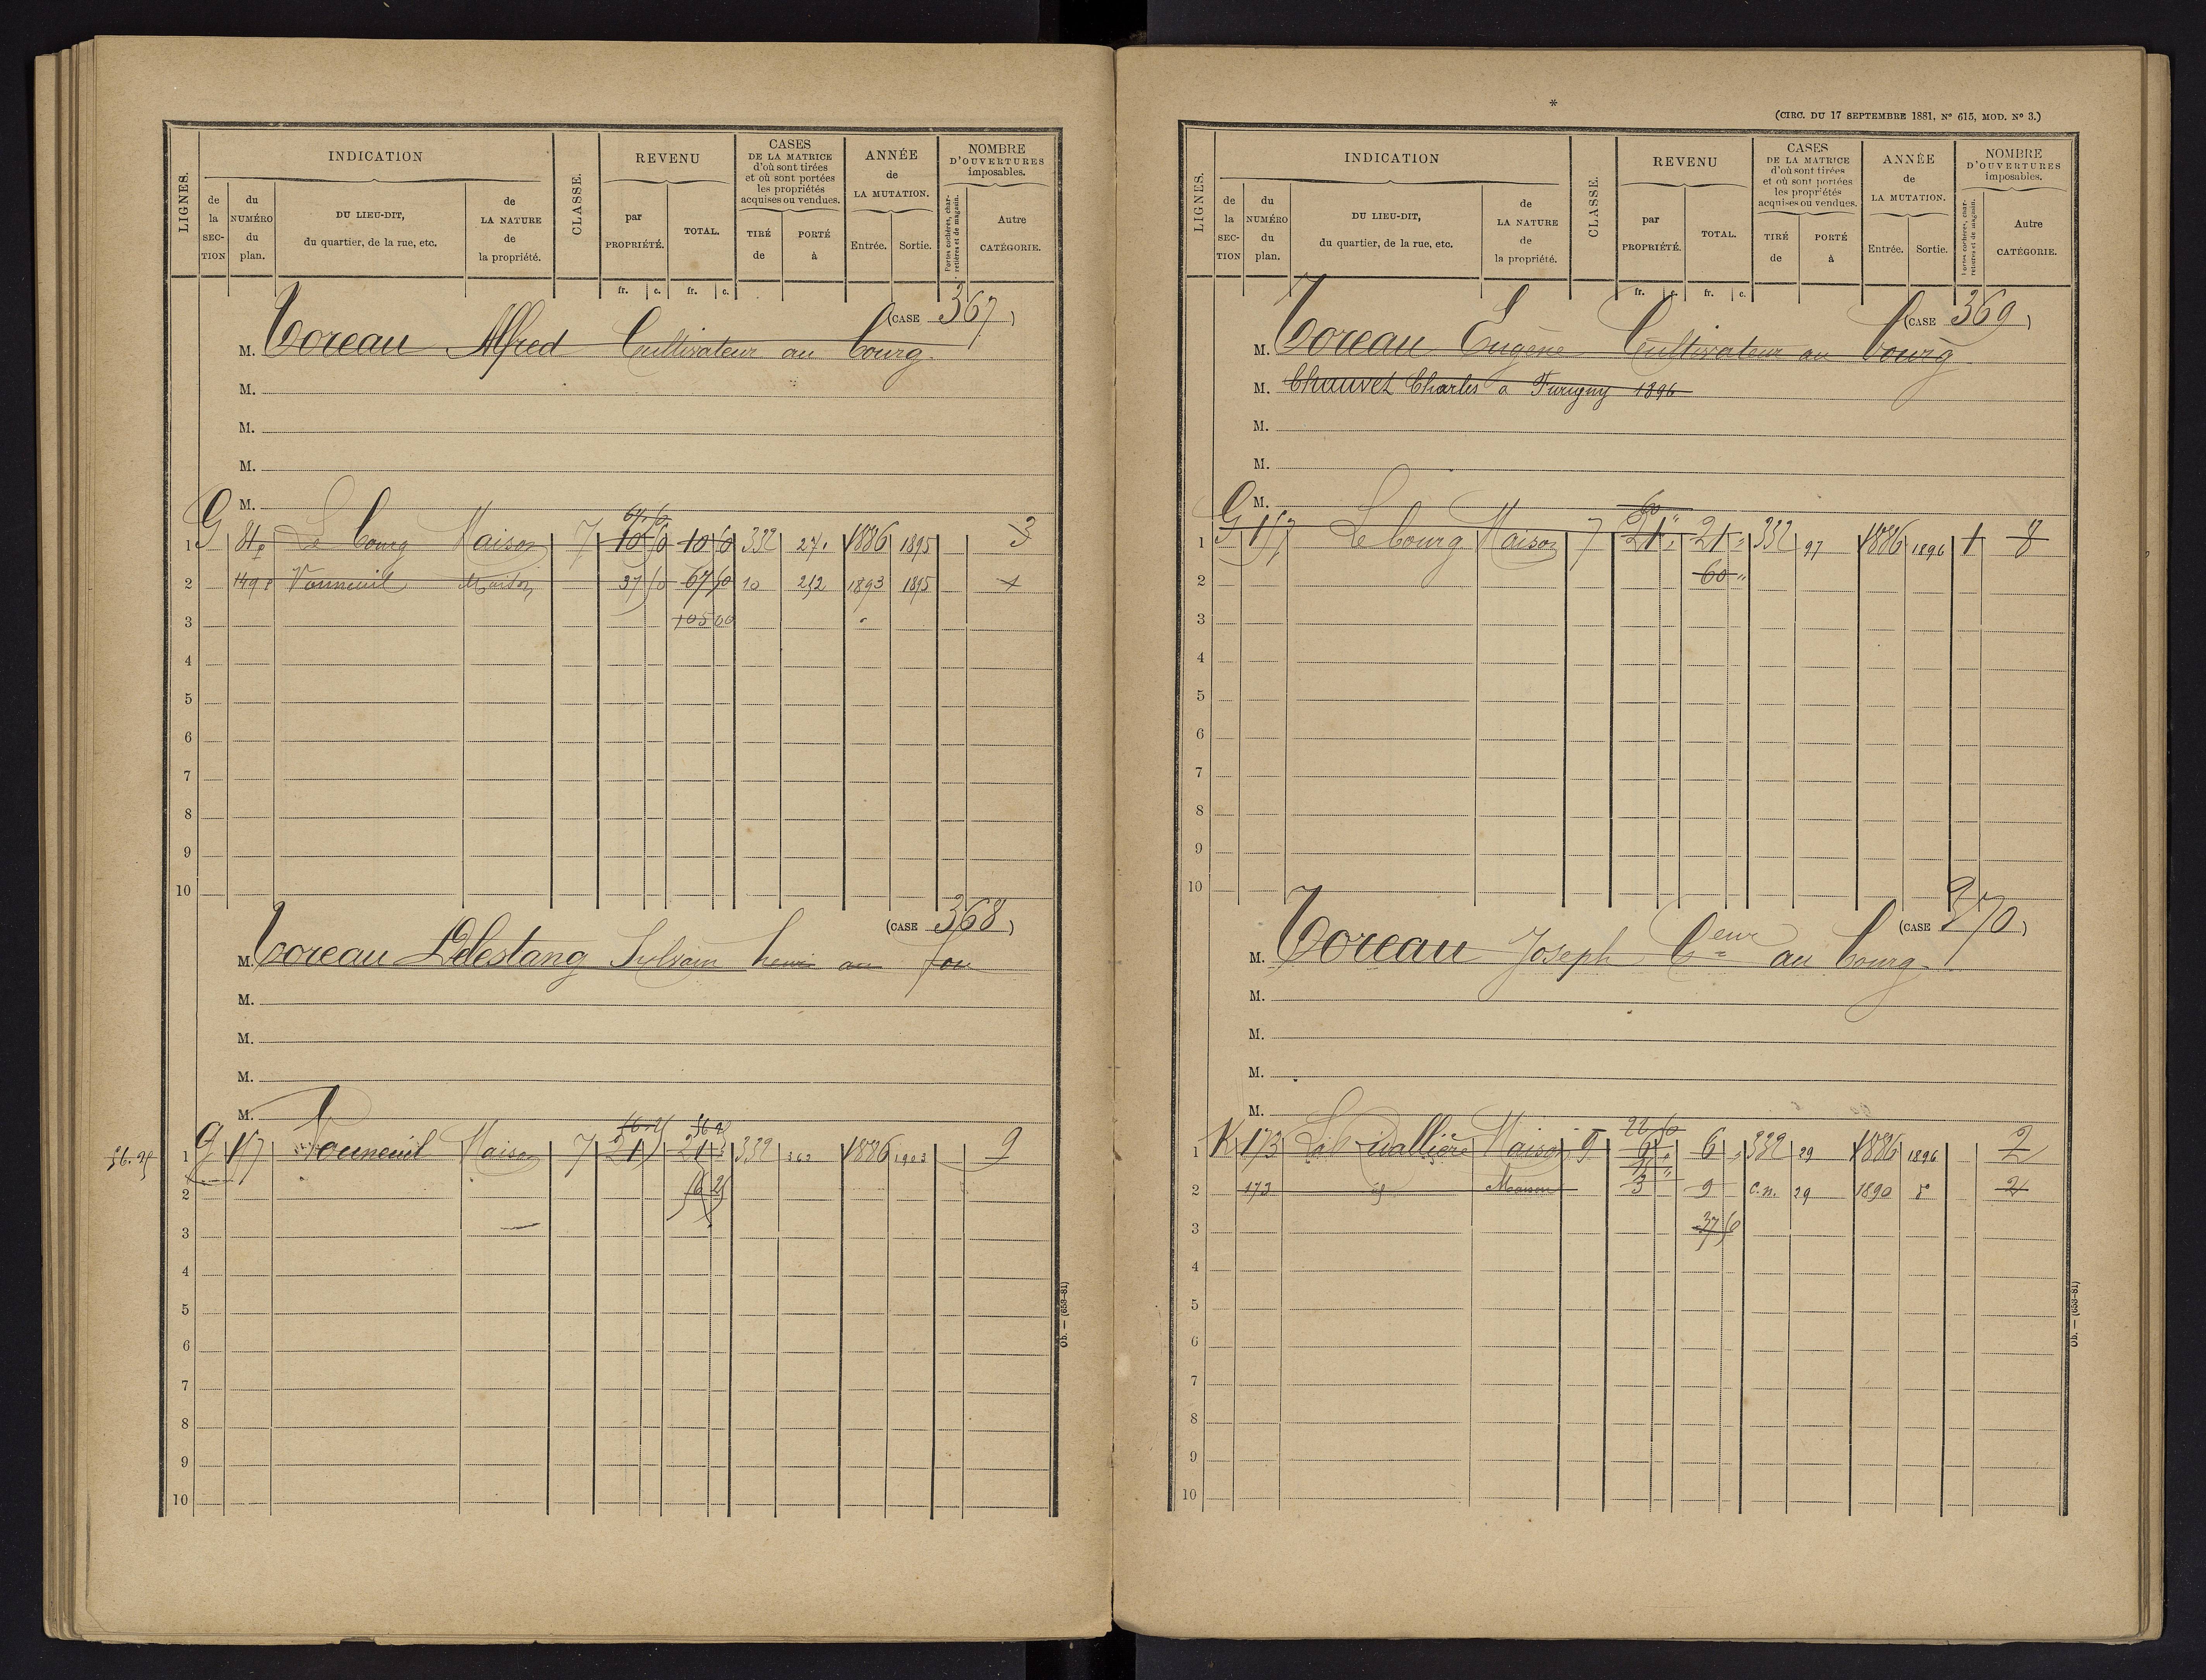 INDICATION
REVENU
CASES
DE LA MATRICE
d'où sont tirées
et où sont portées
les propriétés
acquises ou vendues.
ANNÉE
de
LA MUTATION.
NOMBRE
D'OUVERTURES
imposables.
LIGNES.
de
la
SEC-
TION
du
NUMÉRO
du
plan.
DU LIEU-DIT,
du quartier, de la rue, etc.
de
LA NATURE
de
la propriété.
CLASSE.
par
PROPRIÉTÉ.
TOTAL.
TIRÉ
de
PORTÉ
à
Entrée.
Sortie.
Portes cochères, char-
retières et de magasin.
Autre
CATÉGORIE.
fr. c. fr. c.
(CASE 367)
M. Toreau Alfred Cultivateur au bourg
M.
M.
M.
M.
G
1 81p Le bourg Maison 7 10 50 10 50 332 27 1886 1895 3
2 149p Vouneuil Maison 37 50 67 50 10 212 1893 1895 1
3 105 00
4
5
6
7
8
9
10
(CASE 368)
M. Toreau Delestang Sylvain henri au fou
M.
M.
M.
M.
56.25 56 25
56.25 1 G 157 Vouneuil Maison 7 21 21 332 363 1886 1903 9
2 56 25
3
4
5
6
7
8
9
10
Ob. — (653-81)
*
(CIRC. DU 17 SEPTEMBRE 1881, N° 615, MOD. N° 3.)
INDICATION
REVENU
CASES
DE LA MATRICE
d'où sont tirées
et où sont portées
les propriétés
acquises ou vendues.
ANNÉE
de
LA MUTATION.
NOMBRE
D'OUVERTURES
imposables.
LIGNES.
de
la
SEC-
TION
du
NUMÉRO
du
plan.
DU LIEU-DIT,
du quartier, de la rue, etc.
de
LA NATURE
de
la propriété.
CLASSE.
par
PROPRIÉTÉ.
TOTAL.
TIRÉ
de
PORTÉ
à
Entrée.
Sortie.
Portes cochères, char-
retières et de magasin.
Autre
CATÉGORIE.
fr. c. fr. c.
(CASE 369)
M. Toreau Eugène Cultivateur au bourg
M. Chauvet Charles a Furigny 1896
M.
M.
M.
60
1 G 157 Le bourg Maison 7 21 " 21 " 332 97 1886 1896 1 8
2 60 "
3
4
5
6
7
8
9
10
(CASE 370)
M. Toreau Joseph Ceur au bourg
M.
M.
M.
M.
1 K 173 Maison 6 332 29 1886 1896 2
2 173 id Maison 3 9 C.n. 29 1890 2
3 37 50
4
5
6
7
8
9
10
Ob. — (653-81)